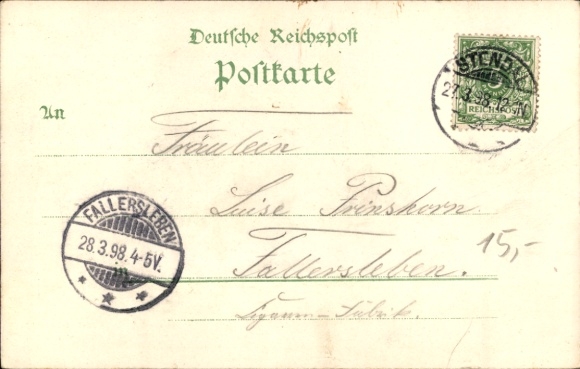 Deutsche Reichspost
Postkarte
An
STENDAL
27.3.98.12-N.
REICHSPOST
Fräulein
Luise Prinshorn.
15,-
Fallersleben.
FALLERSLEBEN
28.3.98.4-5V.
Fabrik.